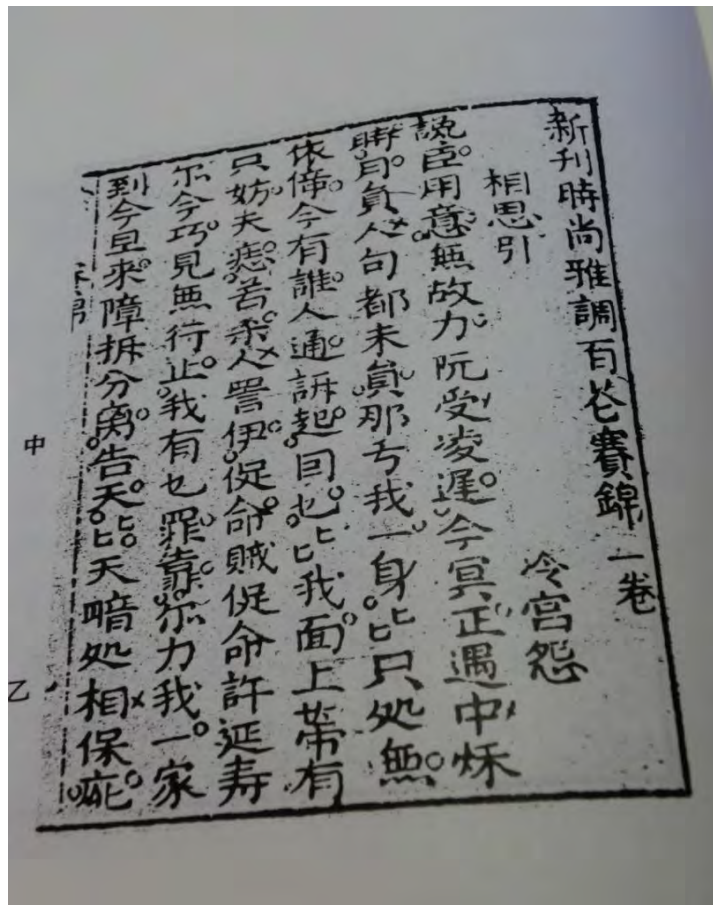 新刊時尚雅調百花賽錦一卷
相思引 冷宮怨
讒臣用意無故力阮受凌遲今冥正遇中秌
時月負人句都未負那亏我一身〻只処無
依倚今有誰人通訴起目乜〻我面上帶有
只妨夫痣苦柰人詈伊促命賊促命許延寿
尓今巧見無行止我有乜罪靠尓力我一家
到今旦來障拆分离告天〻天暗処相保庇
中
乙